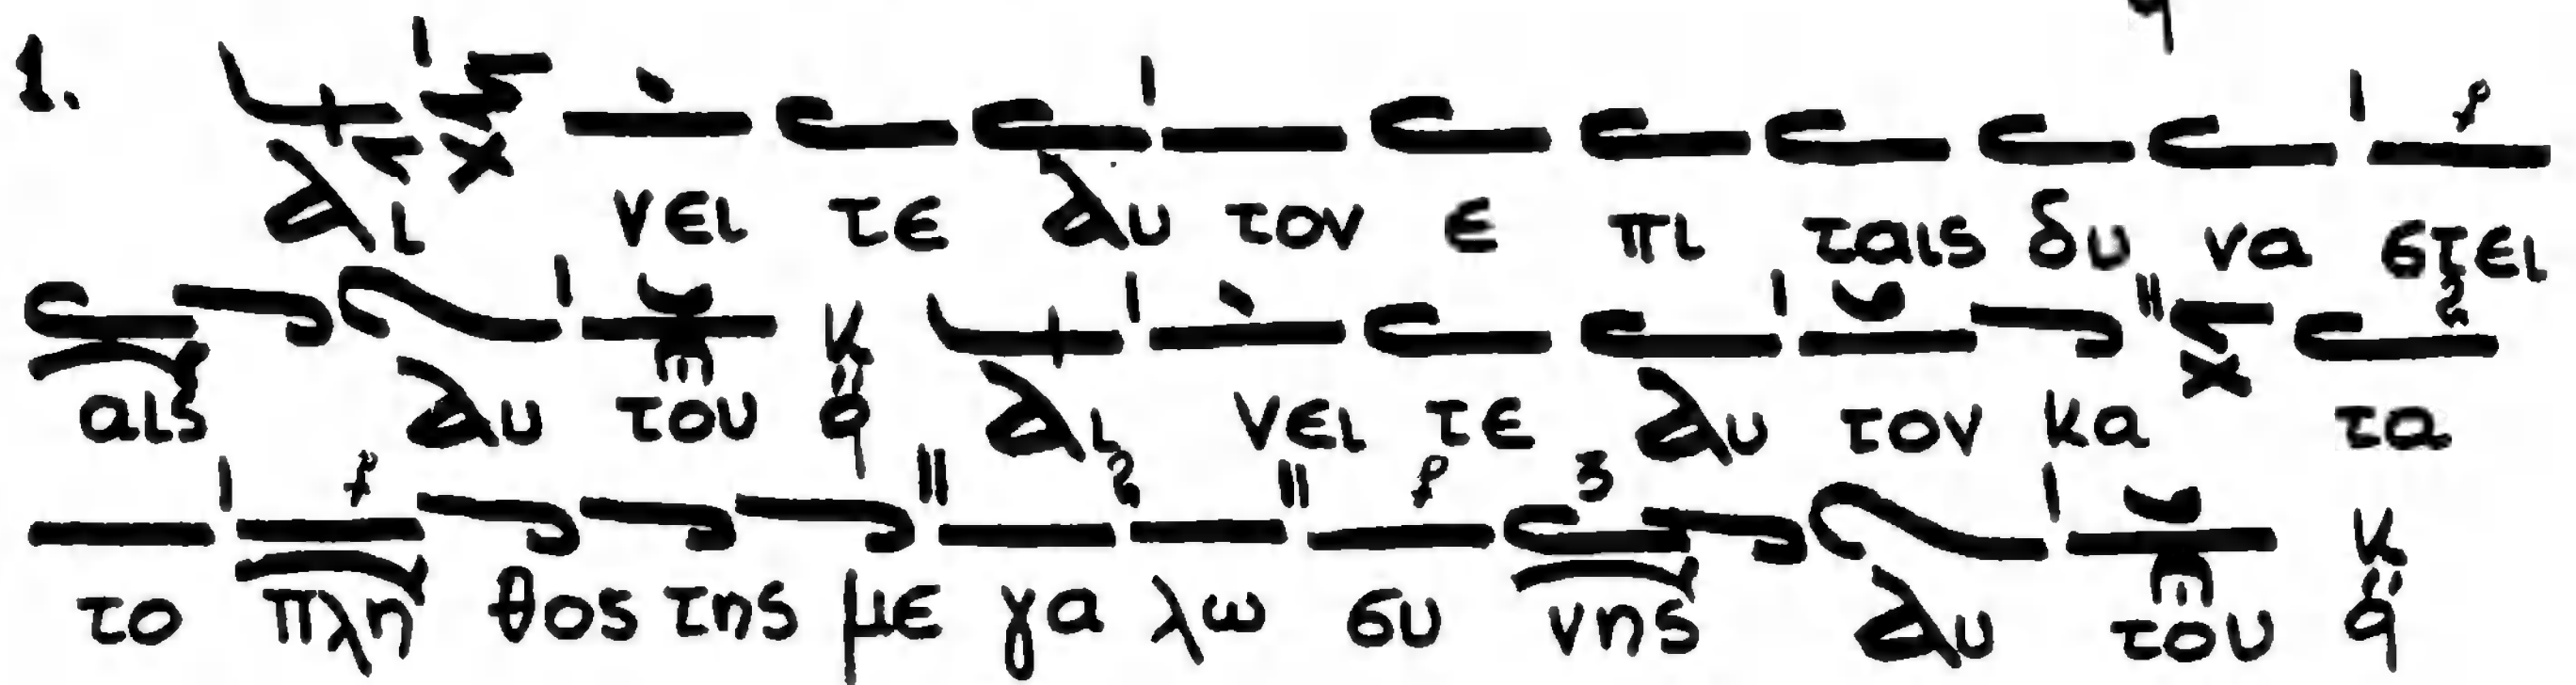 1. Αι νει τε αυ τον ε πι ταις δυ να στει
αις αυ του Αι νει τε αυ τον κα τα
το πλη θος της με γα λω συ νης αυ του